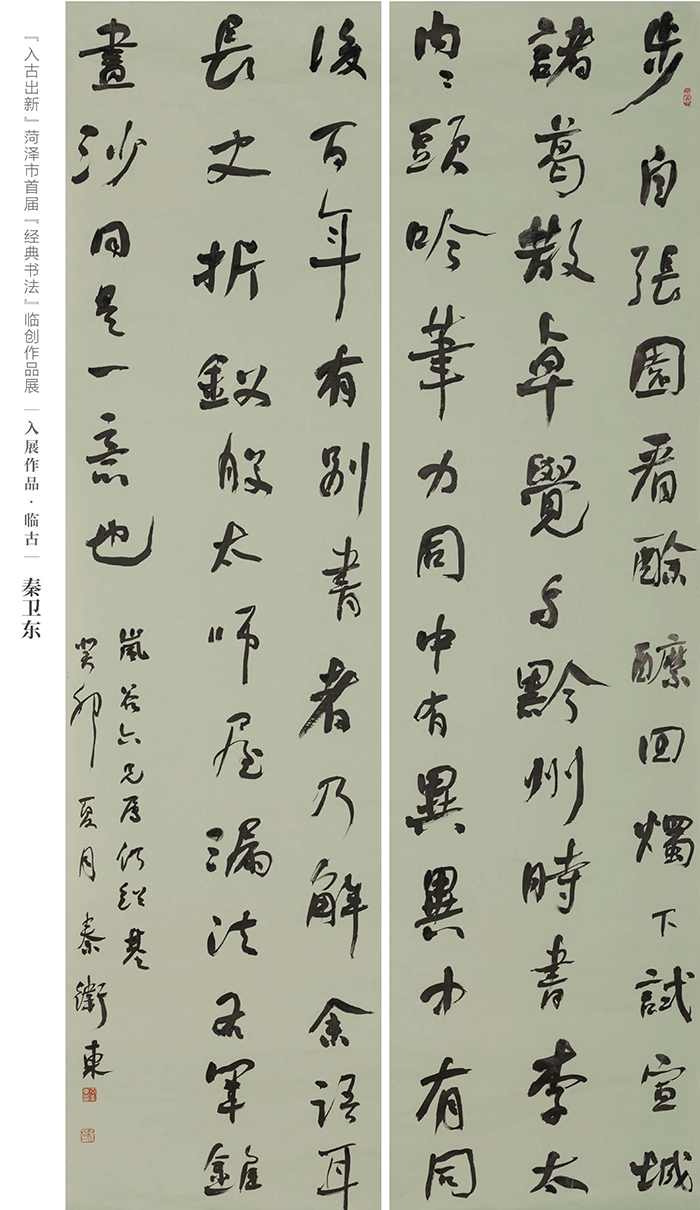 『入古出新』菏泽市首届『经典书法』临创作品展｜入展作品·临古｜秦卫东
步自張園看酴醾回燭下試宣城
諸葛散卓覺与黔州時書李太
白〻頭吟筆力同中有異異中有同
後百年有別書者乃解余語耳
長史折釵股太師屋漏法右軍錐
畫沙同是一意也
嵐谷六兄屬何紹基
癸卯夏月秦衛東